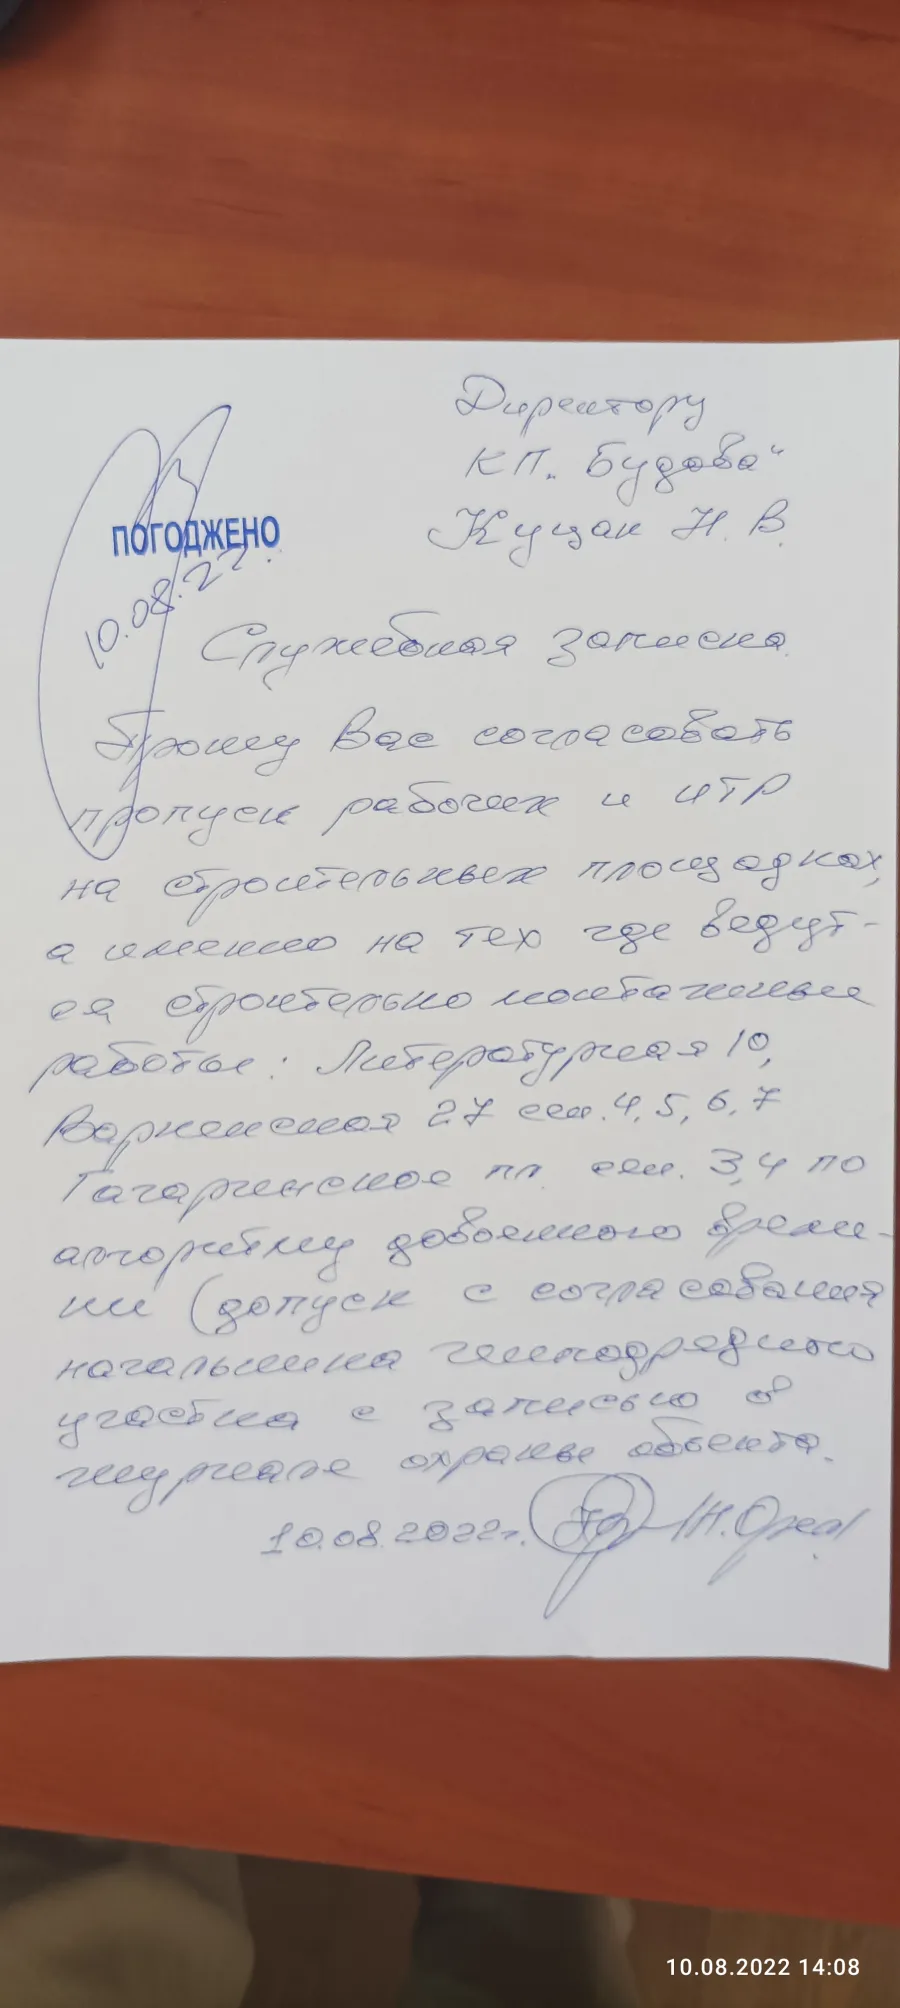 Директору
КП „Будова“
Куцак Н. В.
ПОГОДЖЕНО
10.08.22.
Служебная записка.
Прошу Вас согласовать
пропуск рабочих и ИТР
на строительных площадках,
а именно на тех где ведут-
ся строительно монтажные
работы: Литературная 10,
Варненская 27 сек. 4, 5, 6, 7
Гагаринское пл. сек. 3,4 по
алгоритму довоенного време-
ни (допуск с согласования
начальника генподрядного
участка с записью в
журнале охраны объекта.
10.08.2022г.
10.08.2022 14:08